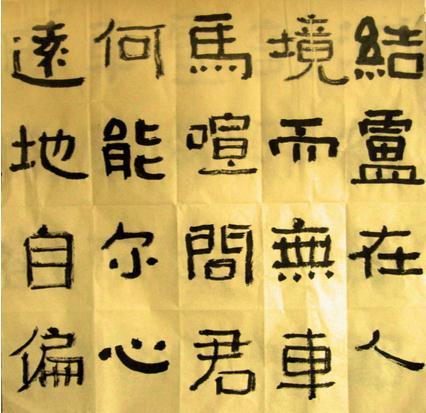 結盧在人
境而無車
馬喧問君
何能尔心
遠地自偏